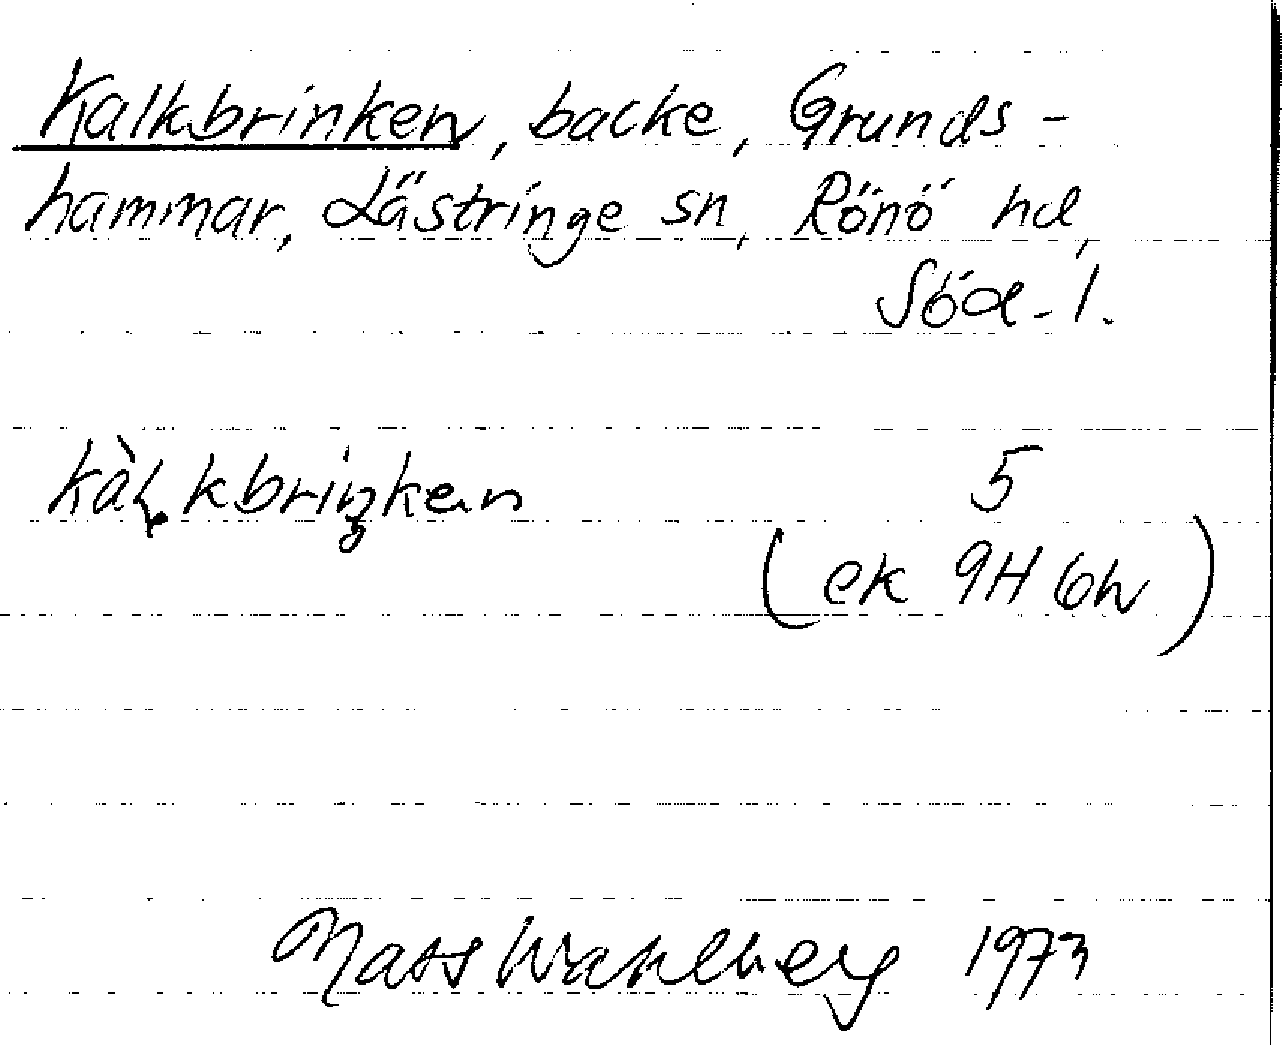 Kalkbrinken, backe, Grunds-
hammar, Lästringe sn, Rönö hd,
Söd-l.
5
(ek 9H 6h)
Mats Wahlberg 1973